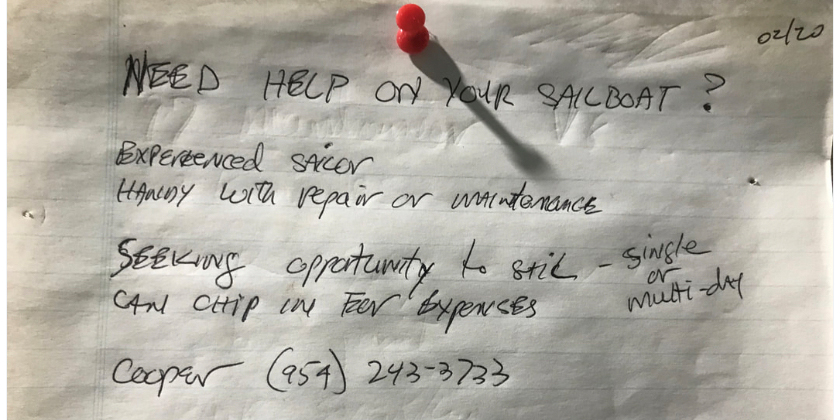 02/20
NEED HELP ON YOUR SAILBOAT ?
EXPERIENCED SAILOR
HANDY WITH repair or MAINTENANCE
SEEKING opportunity to SAIL - single or multi-day
CAN CHIP IN FOR EXPENSES
Cooper (954) 243-3733